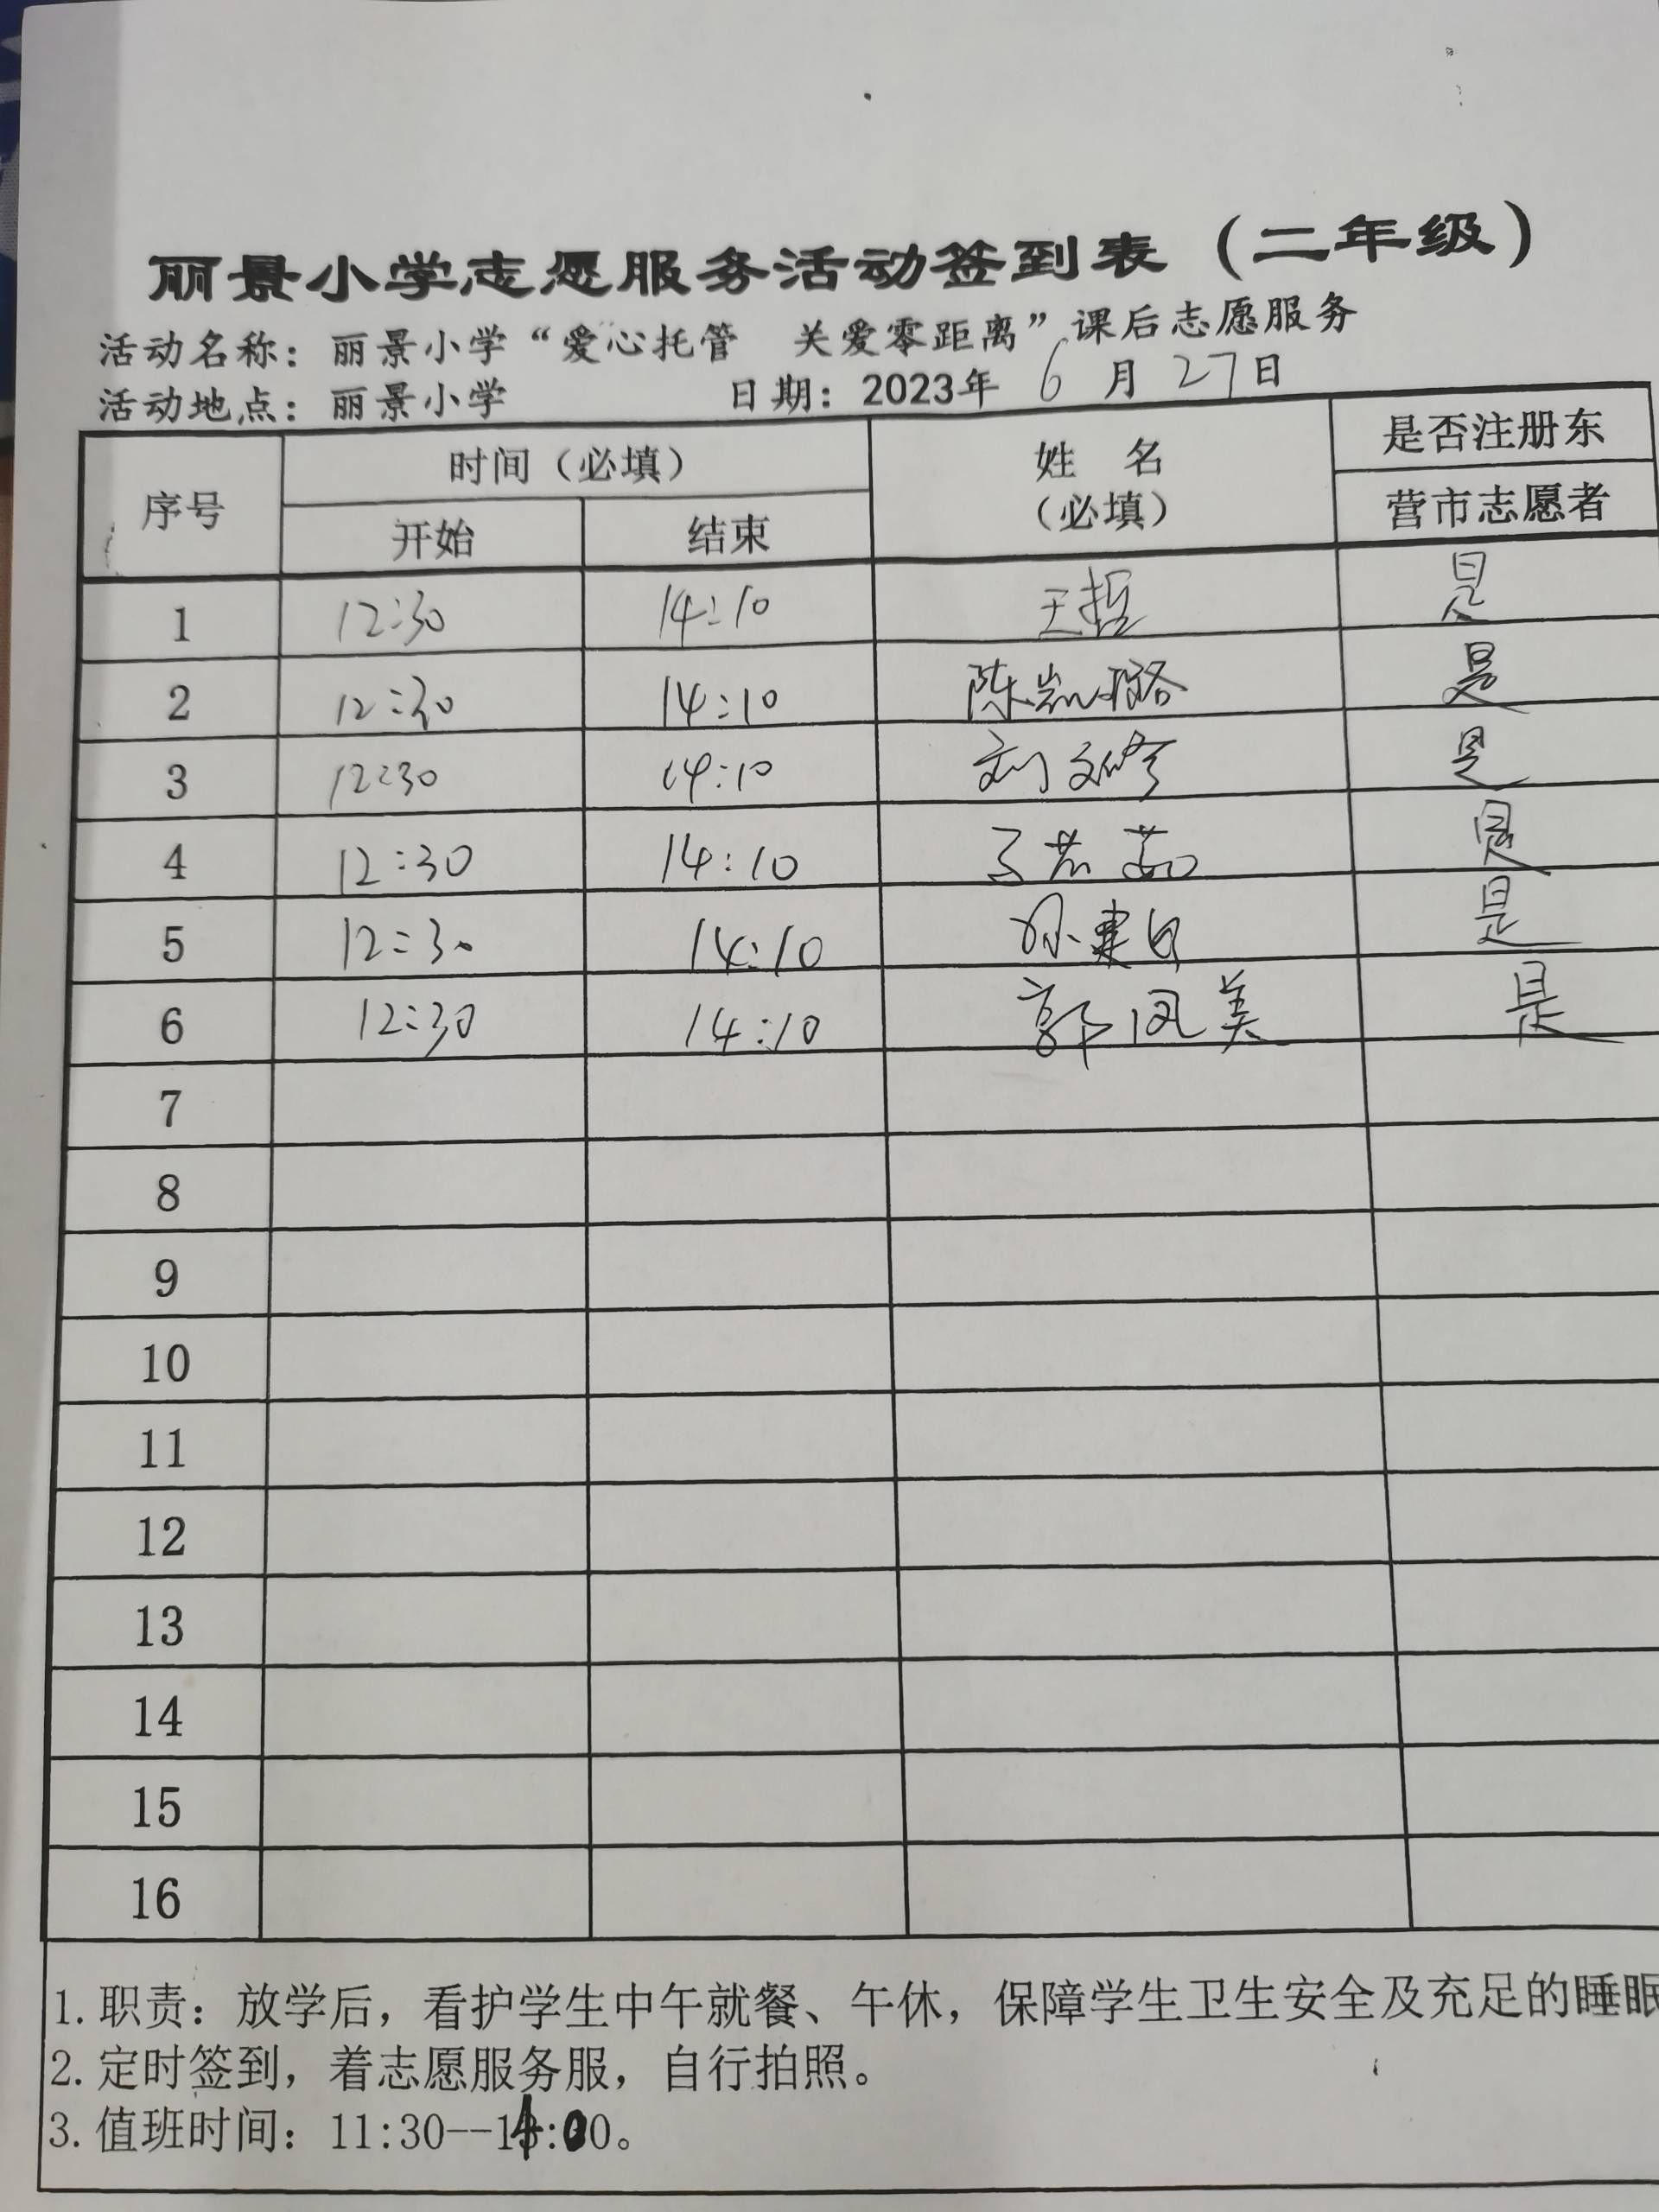 丽景小学志愿服务活动签到表（二年级）
活动名称：丽景小学“爱心托管 关爱零距离”课后志愿服务
活动地点：丽景小学 日期：2023年 6 月 27日
序号 时间（必填） 姓 名（必填） 是否注册东营市志愿者
开始 结束
1 12:30 14:10 王哲 是
2 12:30 14:10 陈凯璐 是
3 12:30 14:10 刘文 是
4 12:30 14:10 是
5 12:30 14:10 孙建 是
6 12:30 14:10 郭凤美 是
7
8
9
10
11
12
13
14
15
16
1.职责：放学后，看护学生中午就餐、午休，保障学生卫生安全及充足的睡眠
2.定时签到，着志愿服务服，自行拍照。
3.值班时间：11:30--14:00。